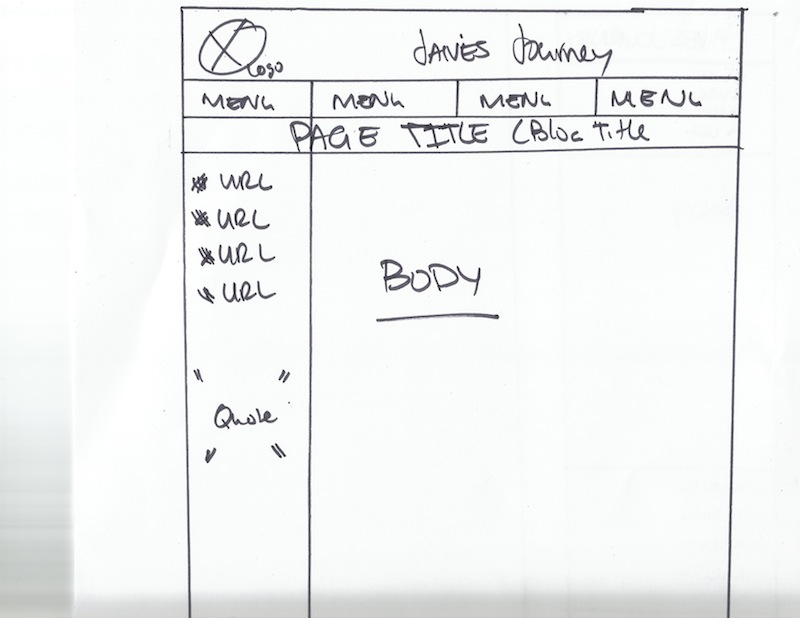 Logo
Journey
MENU MENU MENU MENU
PAGE TITLE (Blog Title
* URL
* URL
* URL
* URL
BODY
" "
Quote
" "